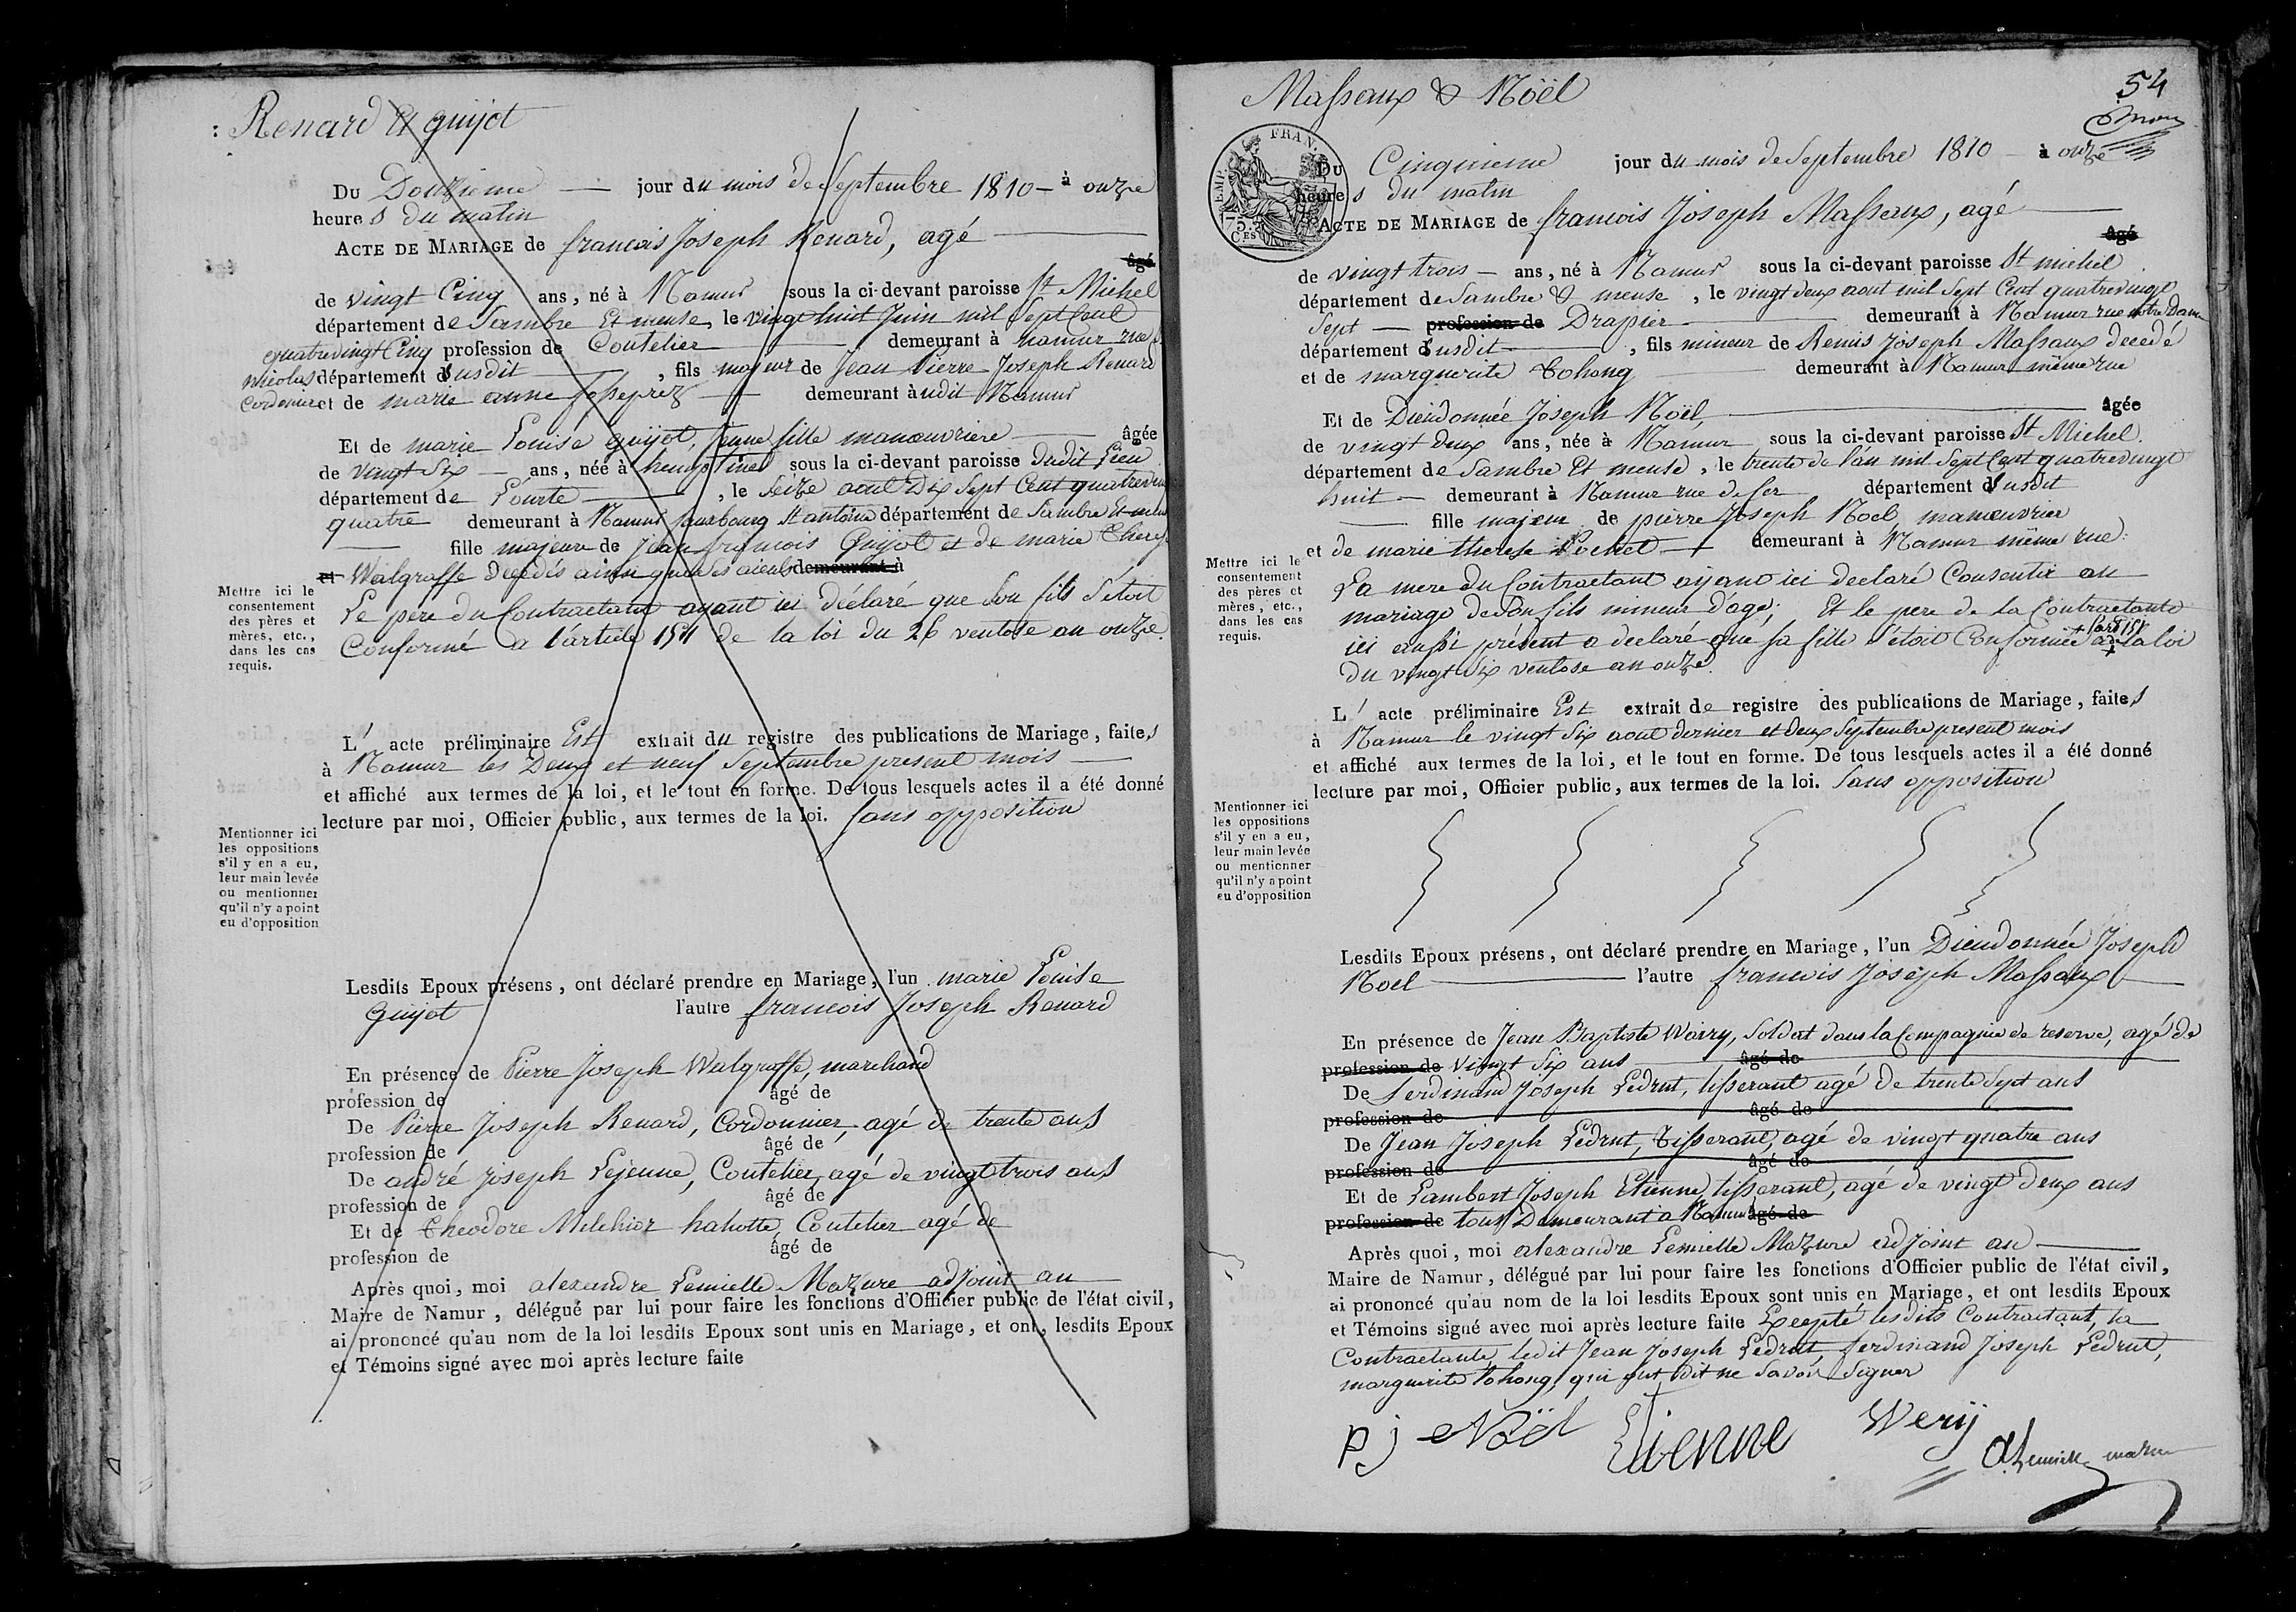 : Renard et guijot
Du Douzieme jour du mois de Septembre 1810 - à onze
heures du matin
ACTE DE MARIAGE de francois Joseph Renard, agé
âgé
de vingt Cinq ans, né à Namur sous la ci-devant paroisse St Michel
département de Sambre Et meuse, le vingt huit Juin mil Sept Cent
quatrevingt Cinq profession de Coutelier demeurant à namur rue
nicolas département dsusdit, fils majeur de Jean Pierre Joseph Renard
Cordonier et de marie anne demeurant àudit Namur
Et de marie Louise guijot, Jeune fille manoeuvriere âgée
de vingt Six - ans, née à sous la ci-devant paroisse dudit Lieu
département de L'ourte, le Seize aout Dix Sept Cent quatrevin
quatre demeurant à Namur fauxbourg St antoine département de Sambre Et meus
fille majeure de Jean francois Guijot et de marie
et Walgraffe Decedés ainsi que ses aieuls demeurant à
Mettre ici le
consentement
des pères et
mères, etc.,
dans les cas
requis.
Le pere du Contractant ayant ici déclaré que Son fils S'étoit
Conformé a l'article 151 de la loi du 26 ventose an onze.
L' acte préliminaire Est extrait du registre des publications de Mariage, faites
à Namur les Deux et neuf Septembre present mois
et affiché aux termes de la loi, et le tout en forme. De tous lesquels actes il a été donné
lecture par moi, Officier public, aux termes de la loi. Sans opposition
Mentionner ici
les oppositions
s'il y en a eu,
leur main levée
ou mentionner
qu'il n'y a point
eu d'opposition
Lesdits Epoux présens, ont déclaré prendre en Mariage, l'un marie Louise
Guijot l'autre francois Joseph Renard
En présence de Pierre Joseph Walgraffe, marchand
profession de âgé de
De Pierre Joseph Renard, Cordonnier, agé de trente ans
profession de âgé de
De andré joseph Lejeune, Coutelier, agé de vingt trois ans
profession de âgé de
Et de Theodore Melchior hahotte, Coutelier agé de
profession de âgé de
Après quoi, moi alexandre Lemielle Mazure adjoint au
Maire de Namur, délégué par lui pour faire les fonctions d'Officier public de l'état civil,
ai prononcé qu'au nom de la loi lesdits Epoux sont unis en Mariage, et ont, lesdits Epoux
et Témoins signé avec moi après lecture faite
Massaux & Nöël
54
FRAN.
EMP.
75.
CES
Du Cinquieme jour du mois de Septembre 1810 - à onze
heures du matin
ACTE DE MARIAGE de francois Joseph Massaux, agé
âgé
de vingt trois - ans, né à Namur sous la ci-devant paroisse St michel
département de Sambre & meuse, le vingt deux aout mil Sept Cent quatrevingt
Sept - profession de Drapier demeurant à Namur rue notre Dame
département dsusdit, fils mineur de Remis Joseph Massaux decedé
et de marguerite Tohong demeurant à Namur même rue
Et de Dieudonnée Joseph Noël, âgée
de vingt deux ans, née à Namur sous la ci-devant paroisse St Michel
département de Sambre Et meuse, le trente de l'an mil Sept Cent quatrevingt
huit - demeurant à Namur rue de fer département dsusdit
fille majeur de pierre Joseph Noel manoeuvrier
et de marie therese Pochet demeurant à Namur même rue
Mettre ici le
consentement
des pères et
mères, etc.,
dans les cas
requis.
La mere du Contractant ayant ici declaré Consentir au
mariage de Son fils mineur d'age; Et le pere de la Contractante
ici aussi présent a declaré que Sa fille S'étoit Conformée a + la loi
+ l'art 151
du vingt Six ventose an onze
L' acte préliminaire Est extrait de registre des publications de Mariage, faites
à Namur le vingt Six aout dernier et deux Septembre present mois
et affiché aux termes de la loi, et le tout en forme. De tous lesquels actes il a été donné
lecture par moi, Officier public, aux termes de la loi. Sans opposition
Mentionner ici
les oppositions
s'il y en a eu,
leur main levée
ou mentionner
qu'il n'y a point
eu d'opposition
Lesdits Epoux présens, ont déclaré prendre en Mariage, l'un Dieudonnée Joseph
Noel l'autre francois Joseph Massaux
En présence de Jean Baptiste Wairy, Soldat dans la Compagnie de reserve, agé de
profession de vingt Six ans âgé de
De Ferdinand Joseph Ledrut, tisserant agé de trente Sept ans
profession de âgé de
De Jean Joseph Ledrut, Tisserant, agé de vingt quatre ans
profession de âgé de
Et de Lambert Joseph Etienne, tisserant, agé de vingt Deux ans
profession de tous Demeurant a Namur âgé de
Après quoi, moi alexandre Lemielle Mazure adjoint au
Maire de Namur, délégué par lui pour faire les fonctions d'Officier public de l'état civil,
ai prononcé qu'au nom de la loi lesdits Epoux sont unis en Mariage, et ont lesdits Epoux
et Témoins signé avec moi après lecture faite Excepté lesdits Contractant, la
Contractante, ledit Jean Joseph Ledrut ferdinand Joseph Ledrut,
marguerite Tohong, qui ont dit ne Savoir Signer
p j Nöel Etienne Werÿ
A. Lemielle mazure